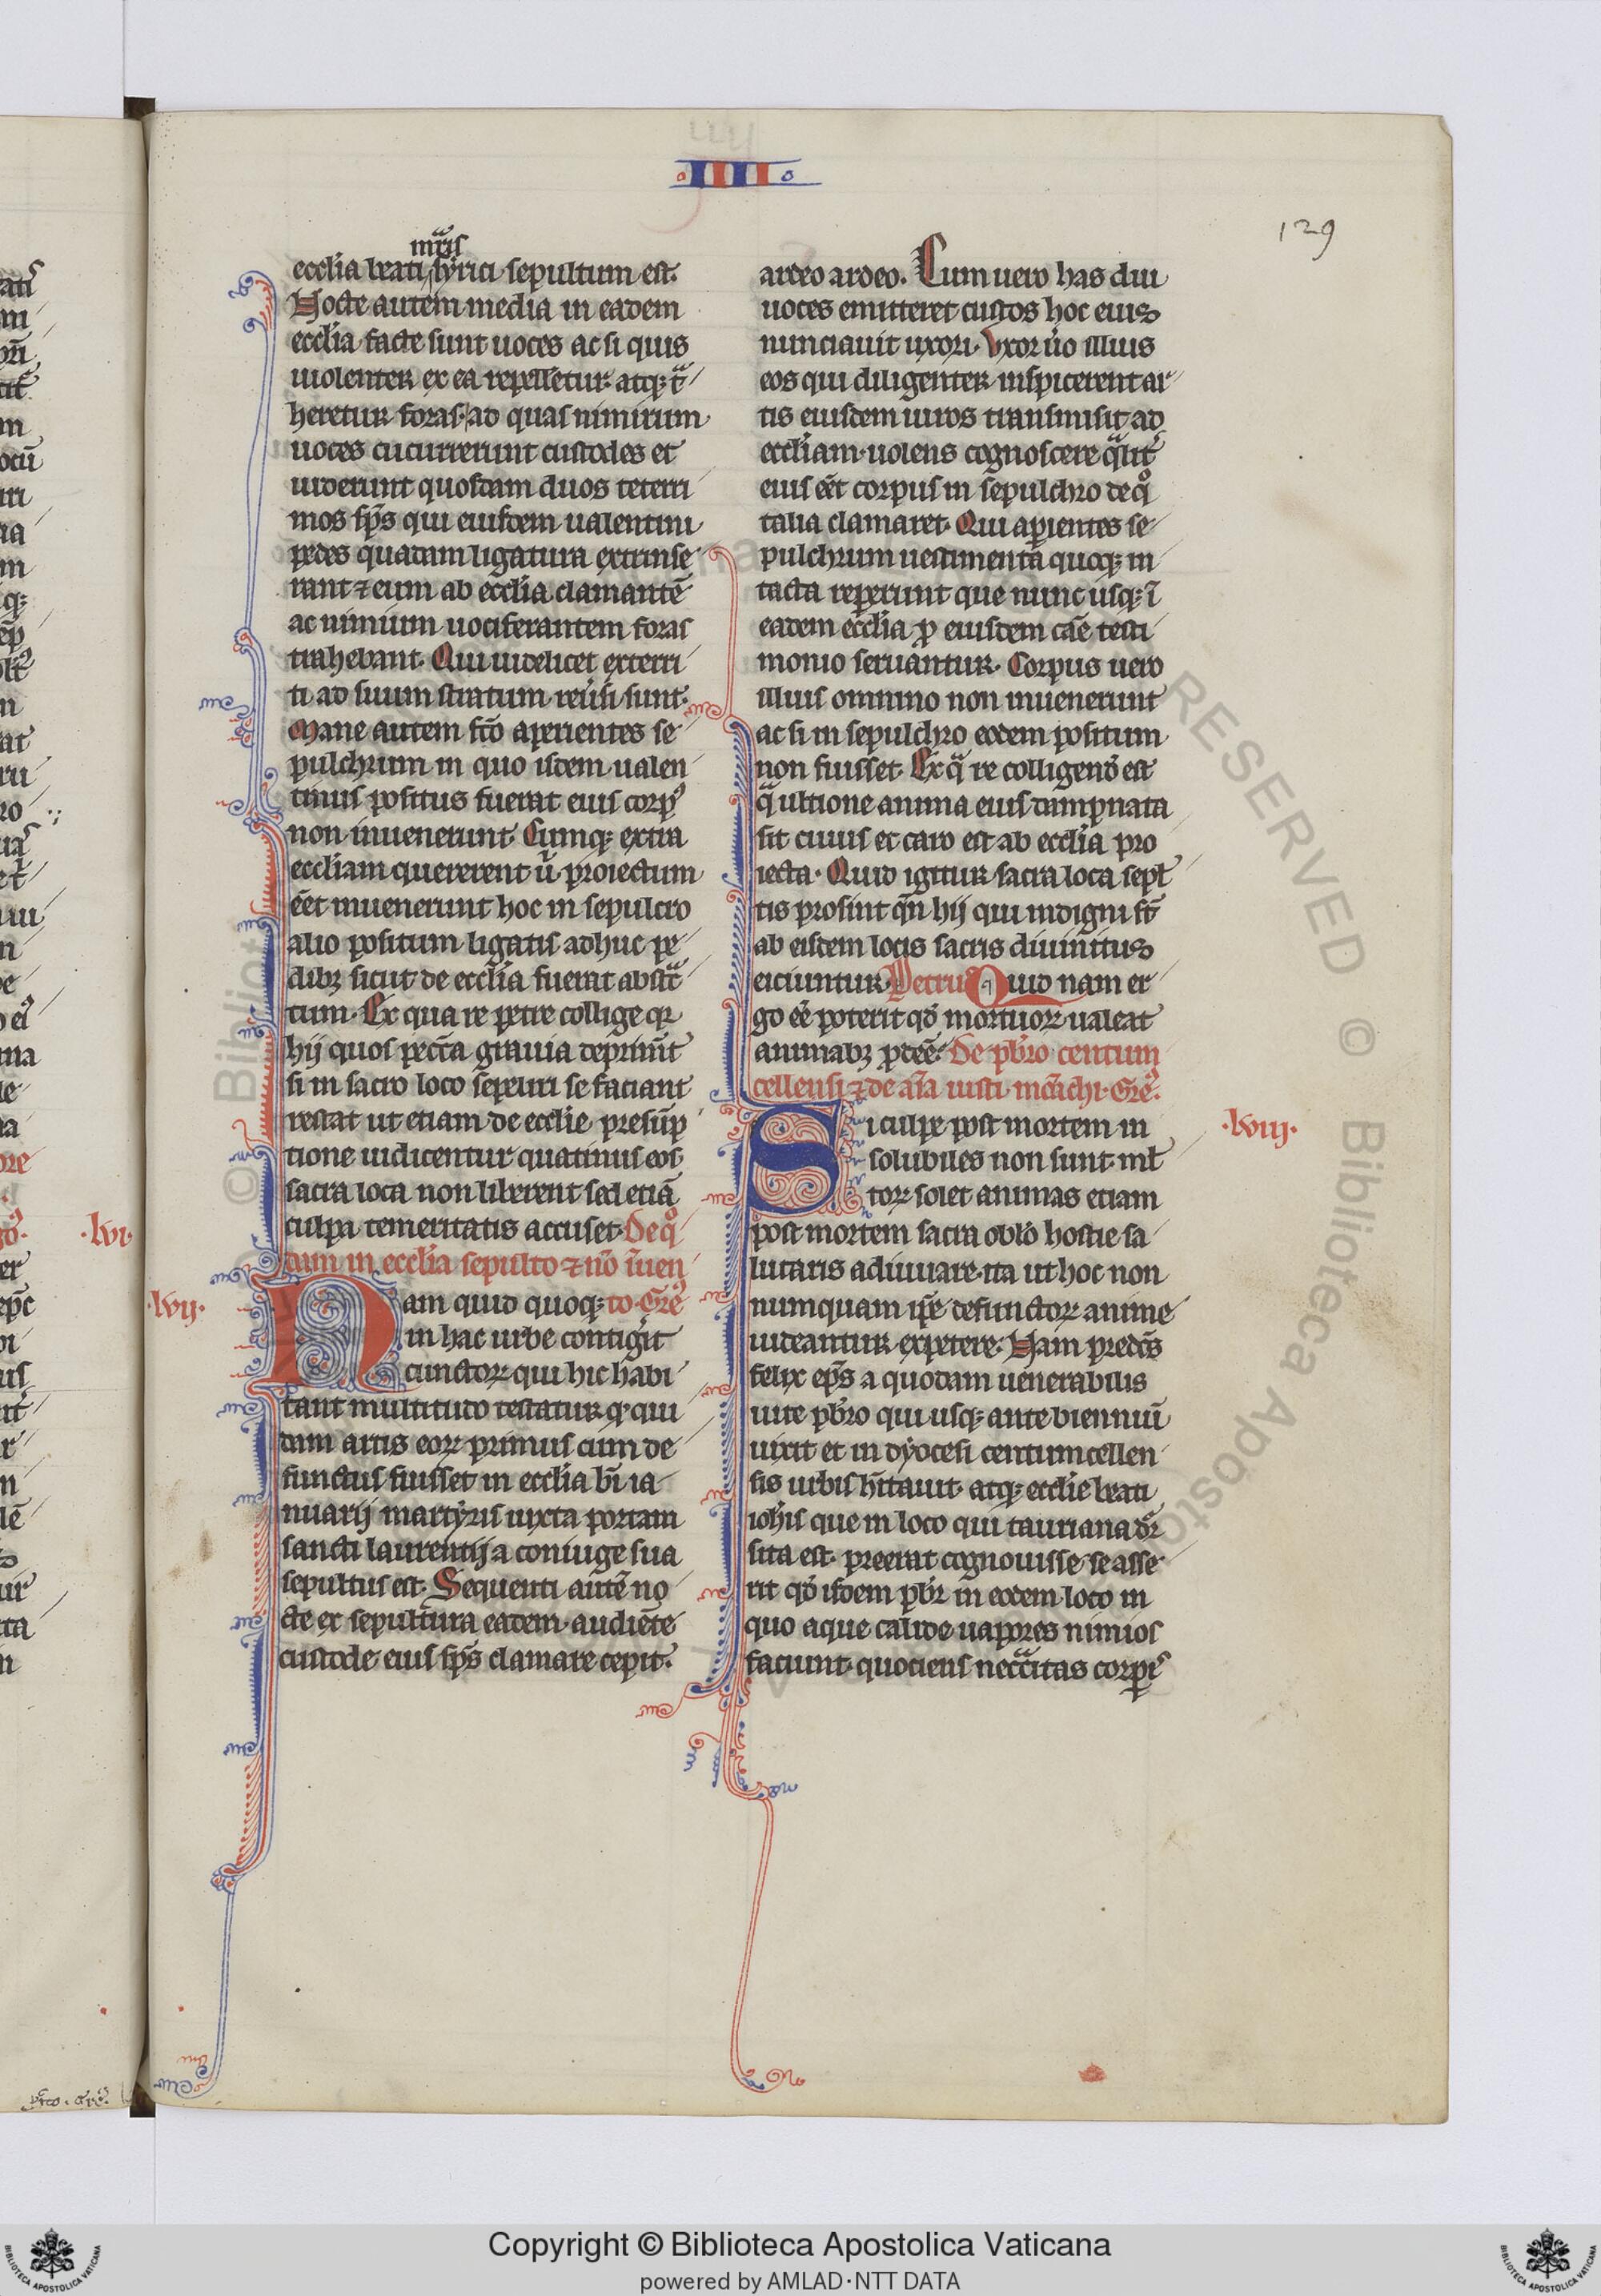 IIII
129
mr̃is
ecclia beati syrici sepultum est.
Nocte autem media in eadem
ecclia facte sunt uoces ac si quis
uiolenter ex ea repelletur atq; tͣ
heretur foras. ad quas nimirum
uoces cucurrerunt custodes et
uiderunt quosdam duos teterri
mos sp̃s qui eiusdem ualentini
pedes quadam ligatura extrinse
rant ⁊ eum ab ecclia clamantẽ
ac nimium uociferantem foras
trahebant. Qui uidelicet exterri
ti ad suum stratum reũsi sunt.
Mane autem fc̃o aperientes se
pulchrum in quo isdem ualen
tinus positus fuerat eius corpꝰ
non inuenerunt. Cumq; extra
eccliam quererent uͥ proiectum
eẽt inuenerunt hoc in sepulcro
alio positum ligatis adhuc pe
dibꝫ sicut de ecclia fuerat abstͣ
ctum. Ex qua re petre collige qꝛ
hij quos pecc̃a grauia deprimũt
si in sacro loco sepeliri se faciant
restat ut etiam de ecclie presũp
tione iudicentur quatinus eos
sacra loca non liberent sed etiã
culpa temeritatis accuset. De qͦ
dam in ecclia sepulto ⁊ nõ ĩuen
·lvii·
Nam quid quoq; to. Grẽ
in hac urbe contigĩt
cunctoꝝ qui hic habi
tant multitudo testatur qꝙ qui
dam artis eoꝝ primus cum de
functus fuisset in ecclia bĩ ia
nuarij martyris iuxta portam
sancti laurentij a coniuge sua
sepultus est. Sequenti autẽ no
cte ex sepultura eadem audiẽte
custode eius sp̃s clamare cepit.
ardeo ardeo. Cum uero has diu
uoces emitteret custos hoc eius
nunciauit uxori. Vxor ũo illius
eos qui diligenter inspicerent ar
tis eiusdem uiros transmisit ad
eccliam uolens cognoscere qͣlit̃
eius eẽt corpus in sepulchro de qͦ
talia clamaret. Qui aperientes se
pulchrum uestimenta quoq; in
tacta repererunt que nunc usq; ĩ
eadem ecclia ꝓ eiusdem cãe testi
monio seruantur. Corpus uero
illius omnino non inuenerunt
ac si in sepulchro eodem positum
non fuisset. Ex qͣ re colligendũ est
qͣ ultione anima eius dampnata
sit cuius et caro est ab ecclia pro
iecta. Quid igitur sacra loca sepł
tis prosint qñ hij qui indigni st̃
ab eisdem locis sacris diuinitus
eiciuntur. Petrus Quid nam er
go eẽ poterit qd̃ mortuoꝝ ualeat
animabꝫ ꝓdeẽ. De pb̃ro centum
cellensi ⁊ de aĩa iusti mõachi. Grẽ.
·lviii·
Si culpe post mortem in
solubiles non sunt mł
toꝝ solet animas etiam
post mortem sacra oblõ hostie sa
lutaris adiuuare ita ut hoc non
numquam ip̃e defunctoꝝ anime
uideantur expetere. Nam predc̃s
felix ep̃s a quodam uenerabilis
uite pb̃ro qui usq; ante bienniũ
uixit et in dyocesi centumcellen
sis urbis hĩtauit. atq; ecclie beati
ioh̃is que in loco qui tauriana dr̃
sita est. preerat cognouisse se asse
rit qd̃ isdem pb̃r in eodem loco in
quo aque calide uapores nimios
faciunt. quociens necc̃itas corpis
·lvi·
Copyright © Biblioteca Apostolica Vaticana
powered by AMLAD·NTT DATA